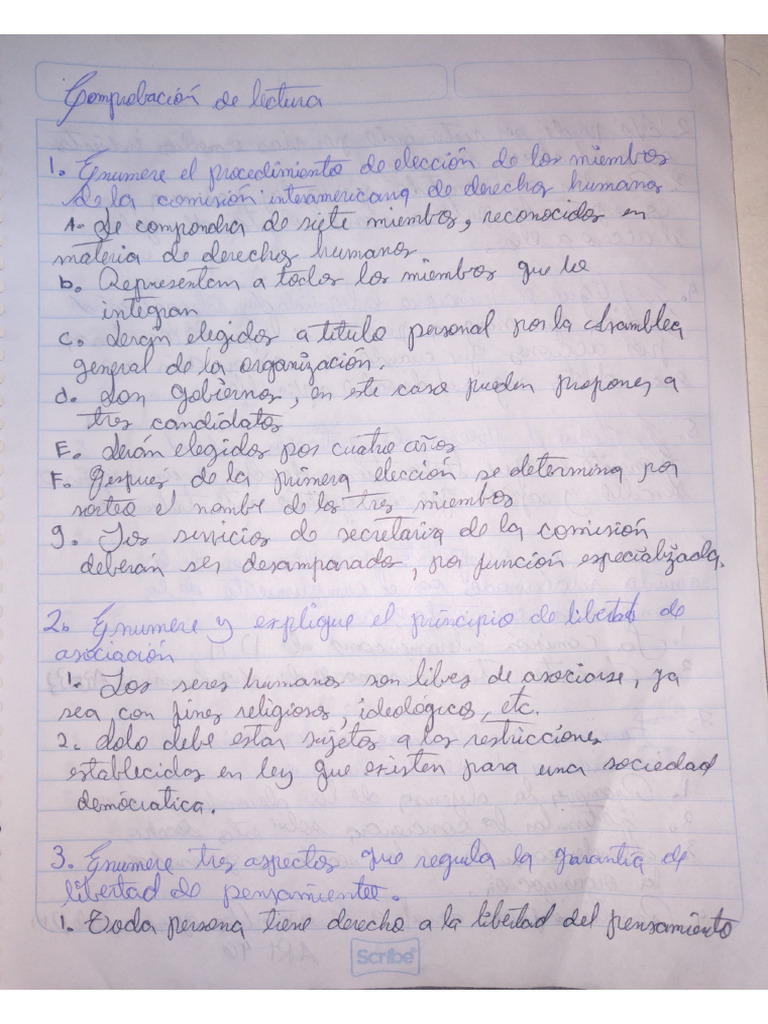 Comprobación de lectura
1. Enumere el procedimiento de elección de los miembros
de la comisión interamericana de derechos humanos
A. Se compondra de siete miembros, reconocidos en
materia de derechos humanos
b. Representam a todos los miembros que la
integran
C. Serán elegidos a titulo personal por la Asamblea
general de la organización.
d. Son gobiernos, en este caso pueden propones a
tres candidatos
E. Serán elegidos por cuatro años
F. Después de la primera elección se determina por
sorteo el nombre de los tres miembros
g. Los servicios de secretaria de la comisión
deberán ser desamparados, por función especializada.
2. Enumere y explique el principio de libertad de
asociación
1. Los seres humanos son libres de asociarse, ya
sea con fines religiosos, ideológicos, etc.
2. Solo debe estar sujetos a las restricciones
establecidas en ley que existen para una sociedad
democratica.
3. Enumere tres aspectos que regula la garantía de
libertad de pensamiento.
1. Toda persona tiene derecho a la libertad del pensamiento
Scribe